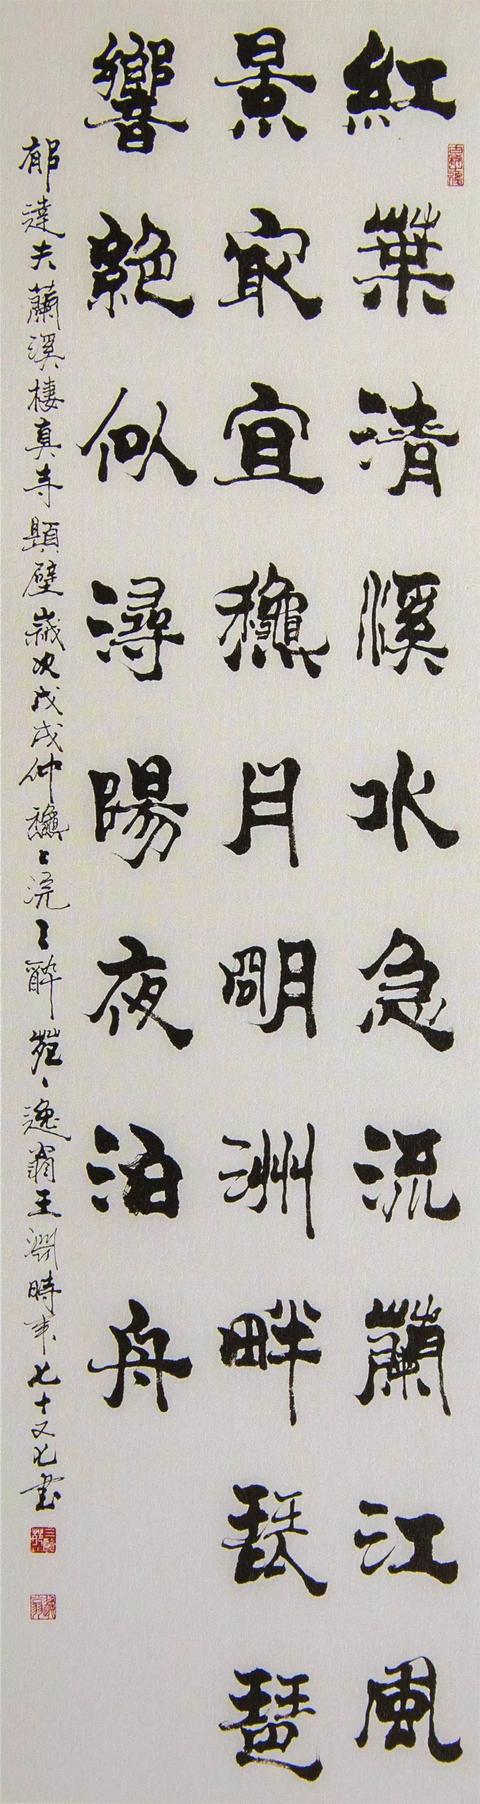 紅葉清溪水急流蘭江風
景㝡宜龝月朙洲畔琵琶
響絕似潯陽夜泊舟
郁達夫蘭溪棲真寺題壁歲次戊戌仲龝浣醉逸翁王時年七十又七書